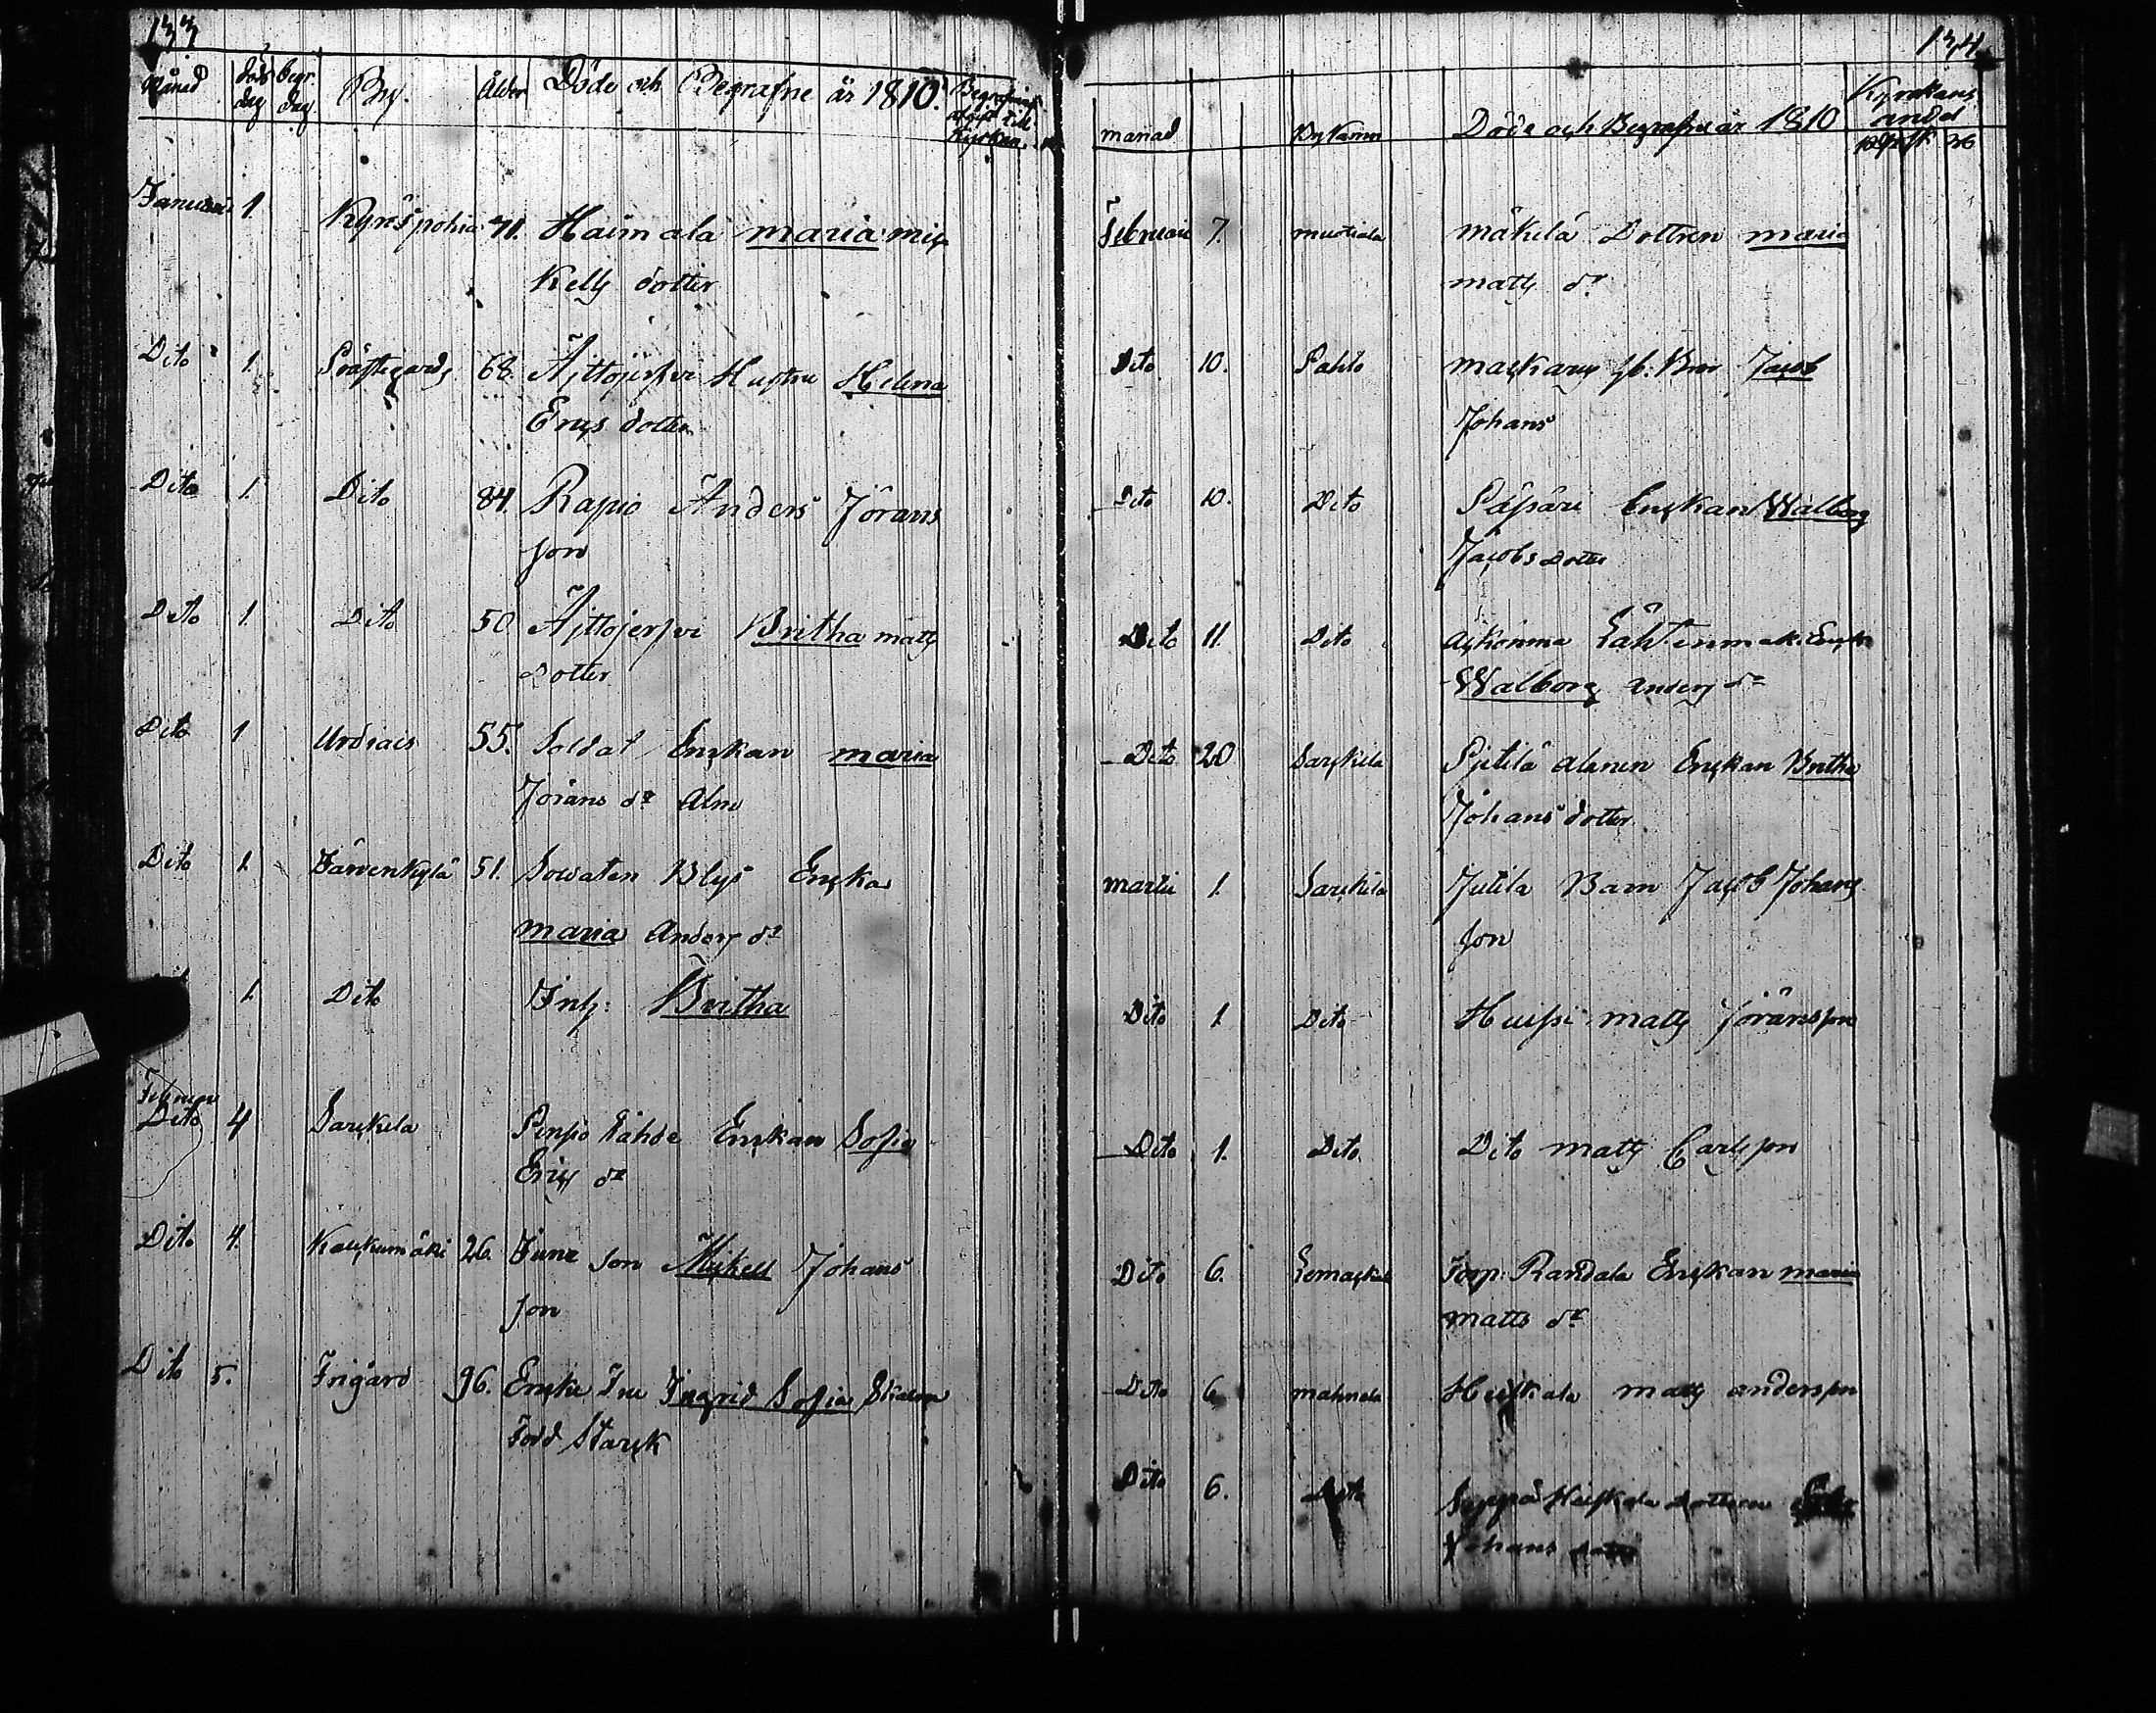 133
Månad döds dag begr. dag By. Ålder Döde och Begrafne år 1810. Begrafnings afgift till Kyrkan
Januarii 1 Kyröspohia 71. Haimala maria mic
Kels dotter
Dito 1. Prästegårds 68 Äijtöjerfvi Hustru Helena
Erics dotter
Dito 1. Dito 84. Rapio Anders Jörans
son
Dito 1. Dito 50 Äijtöjerfvi Britha matts
dotter
Dito 1 Urdiais 55. Soldat Enckan maria
Jörans dr Alm
Dito 1. Järvenkylä 51. Enckan
maria Anders dr
1. Dito Inh: Britha
Februari
Dito 4 Sarckila Lähde Enckan Sofia
Erics dr
Dito 4. Kauckumäki 26. Son Mickell Johans
son
Dito 5. Frigård 96. Encke Fru Ingrid Sofia
Född Starck
134
manad Bÿ Namn Döde och Begrafne år 1810 Kyrckans andel
Februarii 7. mustiala mäkelä Dottren maria
matts dr
Dito 10. Pahlo Jacob
Johans
Dito 10. Dito Enckan Walborg
Jacobs Dotter
Dito 11. Dito Enck
Walborg Anders dr
Dito 20 Sarckila Pjetilä alanen Enckan Britha
Johans dotter
martii 1. Sarckila Jutila Barn Jacob Johans
son
Dito 1. Dito Huissi matts Jöransson
Dito 1. Dito Dito matts Carlsson
Dito 6. Lemackala Torp: Randala Enckan maria
matts dr
Dito 6. mahnala matts andersson
Dito 6. Dito Seppä dottren
Johans dotter